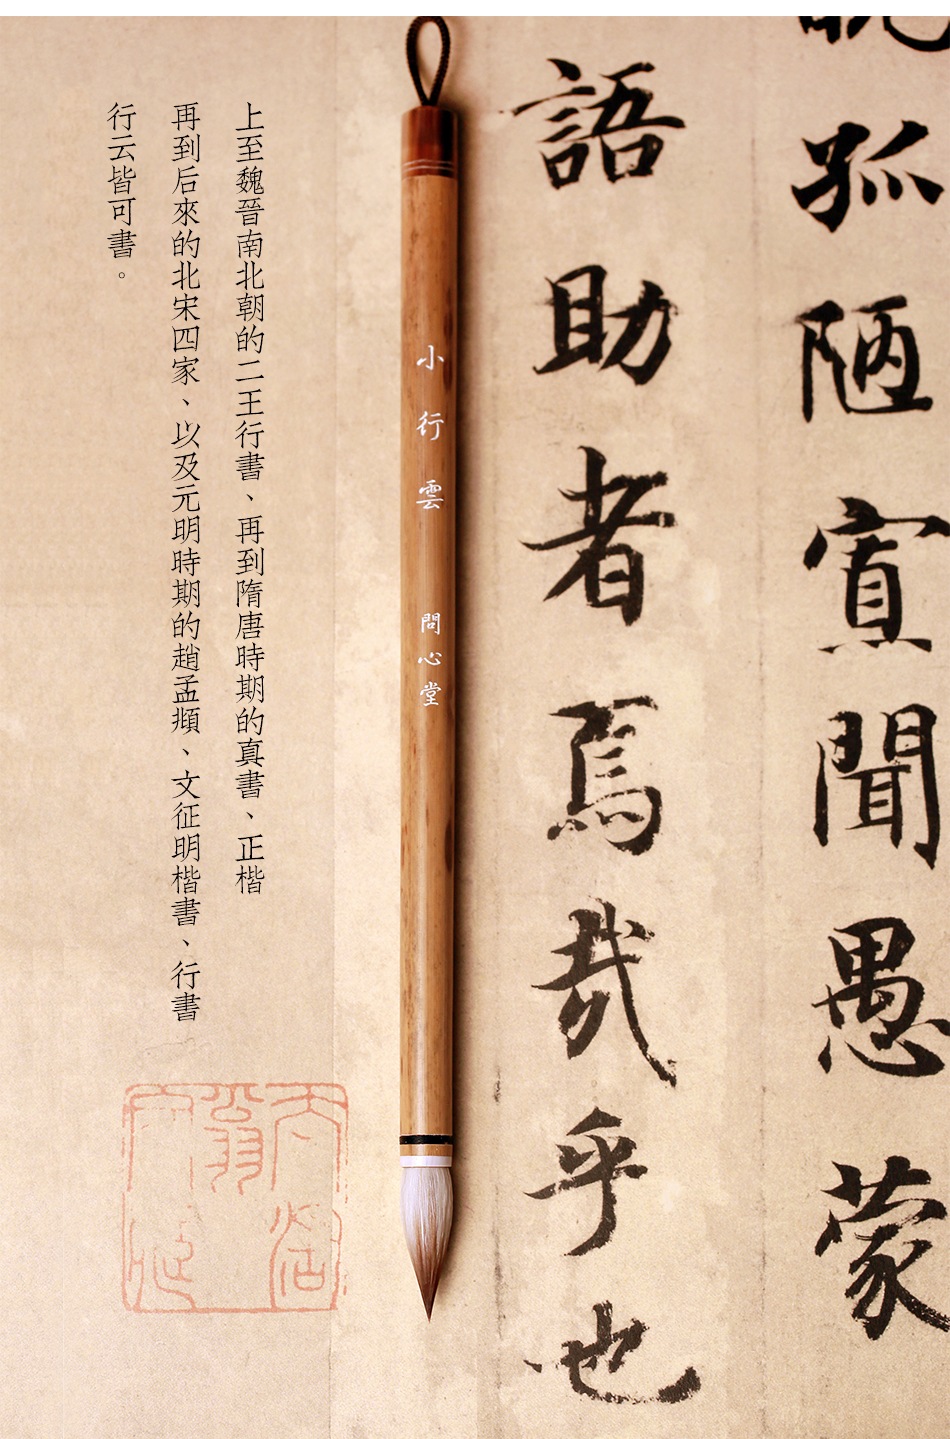 孤陋寡聞愚蒙
語助者焉哉乎也
小行雲 問心堂
上至魏晉南北朝的二王行書、再到隋唐時期的真書、正楷
再到后來的北宋四家、以及元明時期的趙孟頫、文征明楷書、行書
行云皆可書。